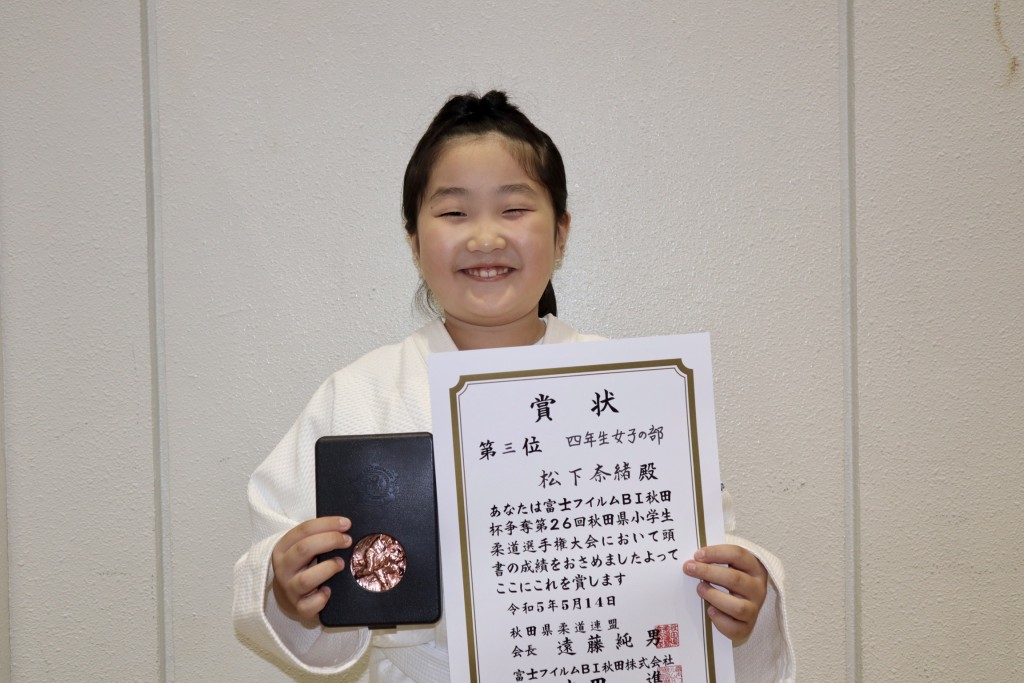 賞 状
第三位 四年生女子の部
松下奈緒 殿
あなたは富士フイルムBI秋田
杯争奪第26回秋田県小学生
柔道選手権大会において頭
書の成績をおさめましたよって
ここにこれを賞します
令和5年5月14日
秋田県柔道連盟
会長 遠藤純男
富士フイルムBI秋田株式会社
進